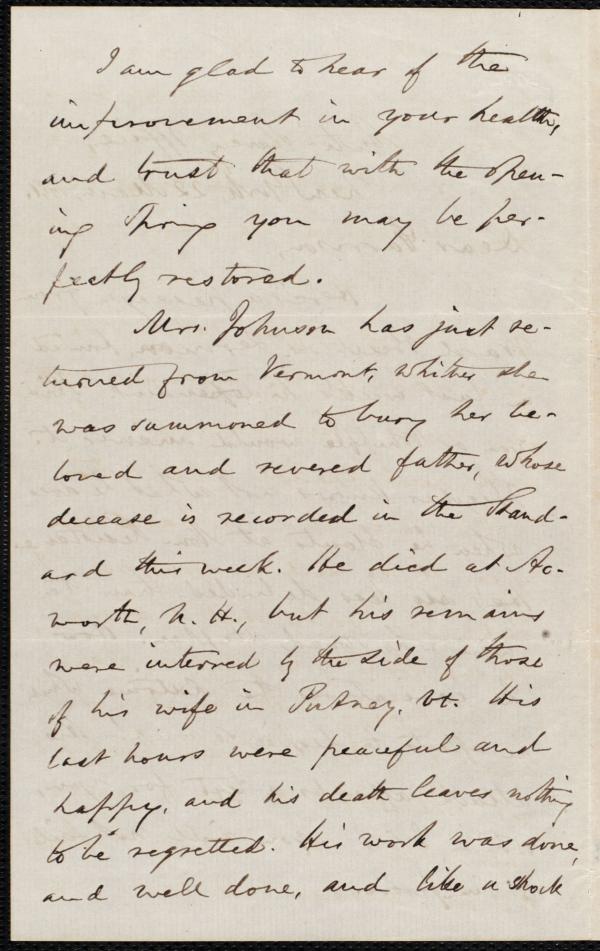 I am glad to hear of the
improvement in your health,
and trust that with the open-
ing Spring you may be per-
fectly restored.
Mrs. Johnson has just re-
turned from Vermont, whither she
was summoned to bury her be-
loved and revered father, whose
decease is recorded in the Stand-
ard this week. He died at Ac-
worth, N. H., but his remains
were interred by the side of those
of his wife in Putney, Vt. His
last hours were peaceful and
happy, and his death leaves nothing
to be regretted. His work was done,
and well done, and like a shock